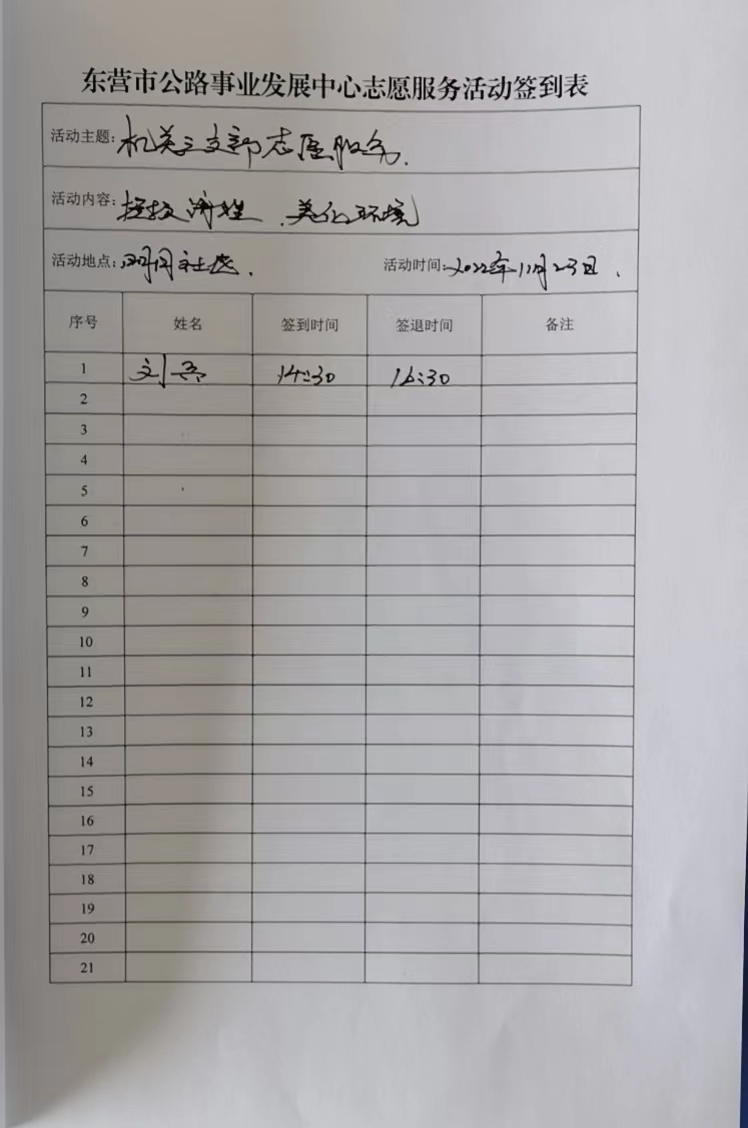 东营市公路事业发展中心志愿服务活动签到表
活动主题: 机关三支部志愿服务.
活动内容: 美化环境
活动地点: 明月社区. 活动时间: 2022年11月23日.
序号 姓名 签到时间 签退时间 备注
1 刘 14:30 16:30
2
3
4
5
6
7
8
9
10
11
12
13
14
15
16
17
18
19
20
21